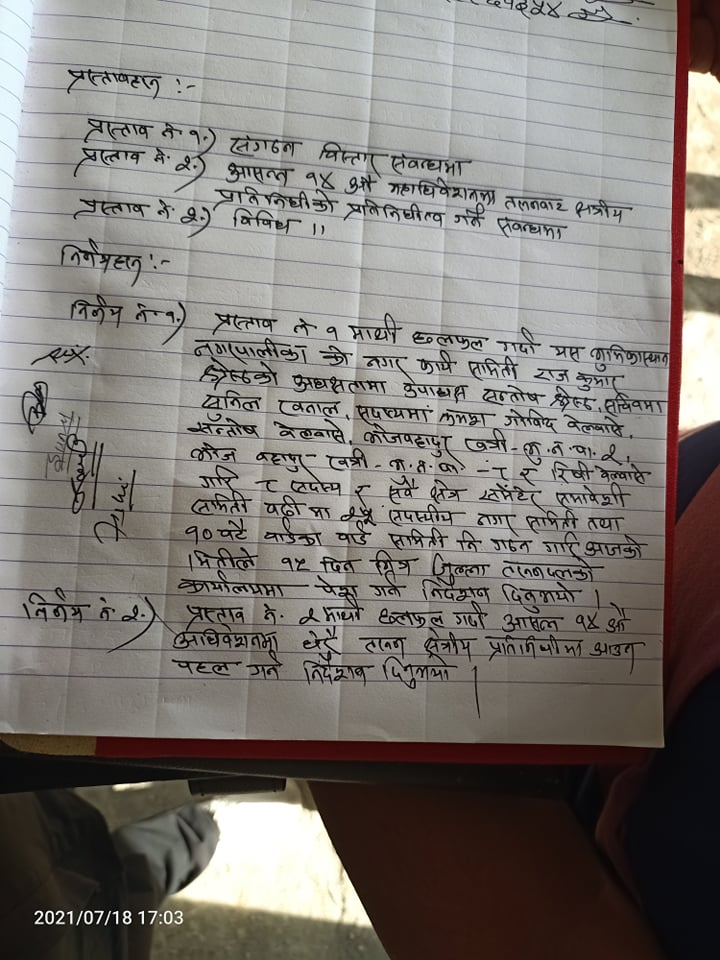 प्रस्तावहरु :-
प्रस्ताव नं. १.) संगठन विस्तार संवन्धमा
प्रस्ताव नं. २.) आसन्न १४ औं महाधिवेशनमा तरुनवाट क्षत्रीय
प्रतिनिधीको प्रतिनिधीत्व गर्ने संवन्धमा
प्रस्ताव नं. २.) विविध ।।
निर्णयहरु :-
निर्णय नं. १.) प्रस्ताव नं १ माथी छलफल गर्दा यस भुमिकास्थान
नगरपालीका को नगर कार्य समिती राज कुमार
श्रेष्ठको अध्यक्षतामा उपाध्यक्ष सन्तोष श्रेष्ठ, सचिवमा
सुनिल खनाल, सदष्यमा क्रमश गोविंद वेल्वासे,
सन्तोष वेल्वासे, भोजवहादुर खत्री - भु. न. पा. २,
भोज वहादुर खत्री - भ. न. पा. - ८ र रिषी वेल्वासे
गरि ८ सदस्य र सवै क्षेत्र समेटेर समावेशी
समिती वढी मा २५ सदष्यीय नगर समिती तथा
१० वटै वार्डका वार्ड समिती नि गठन गरि आजको
मितीले १५ दिन भित्र जिल्ला तरुनदलको
कार्यालयमा पेश गर्न निर्देशन दिनुभयो ।
निर्णय नं. २.) प्रस्ताव नं. २ माथी छलफल गर्दा आसन्न १४ औं
अधिवेशनमा धेरै तरुन क्षेत्रीय प्रतिनिधीमा आउन
पहल गर्न निर्देशन दिनुभयो ।
2021/07/18 17:03